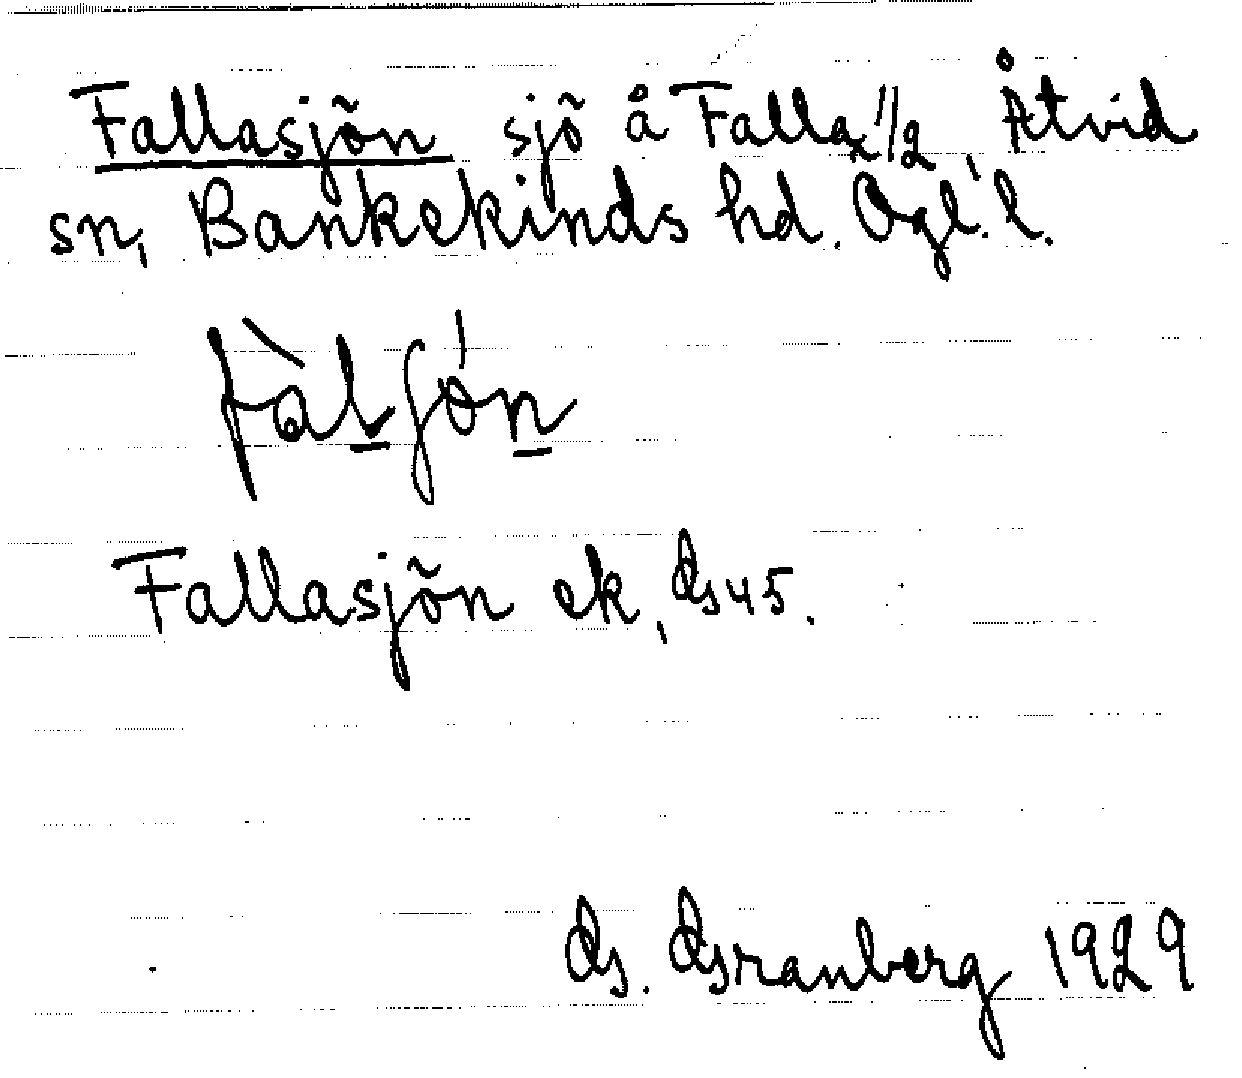 Fallasjön sjö å Falla 1/2, Åtvid
sn, Bankekinds hd. Ögl. l.
Fallasjön ek, G 45.
G. Granberg 1929